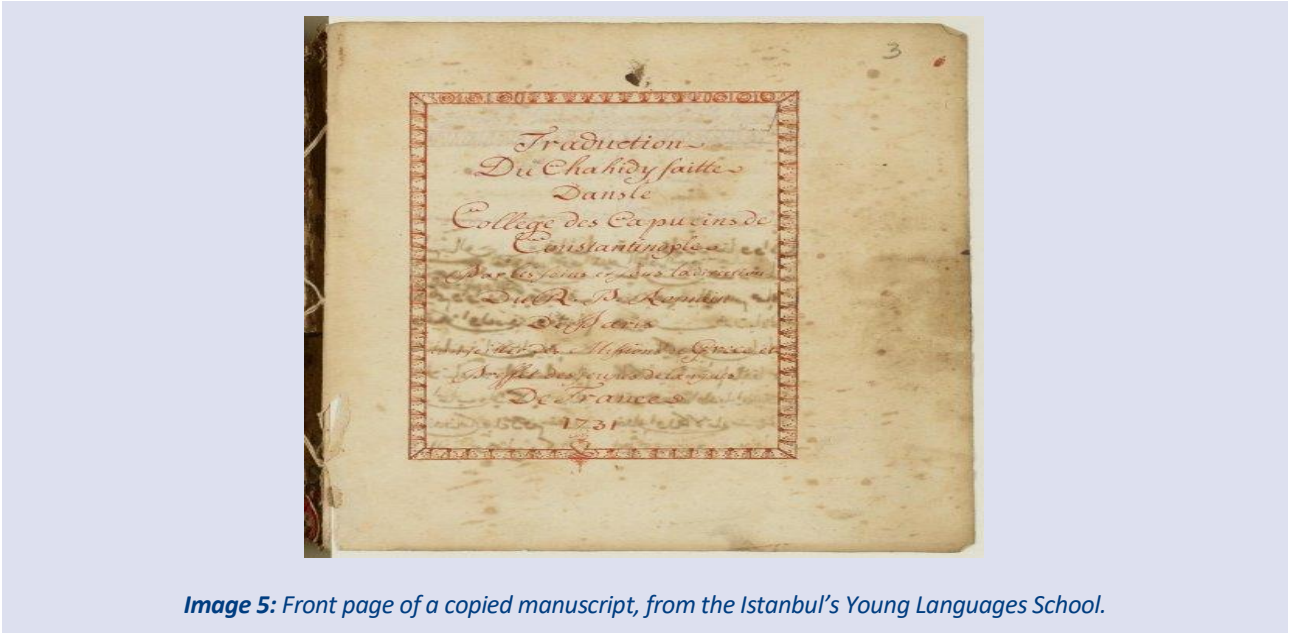 3
Traduction
Du Chahidy faitte
Dans le
College des Capucins de
Constantinople
Par les soins et sous la direction
Du R. P. Romain
De Paris
des Missions de Grece et
des jeunes de langue
De France
1731
Image 5: Front page of a copied manuscript, from the Istanbul’s Young Languages School.